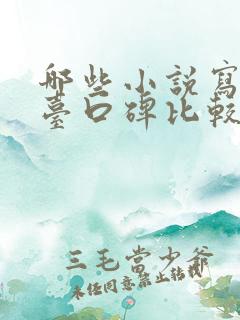 哪些小說寫
臺口碑比較
三毛當少爺
未經同意禁止轉載